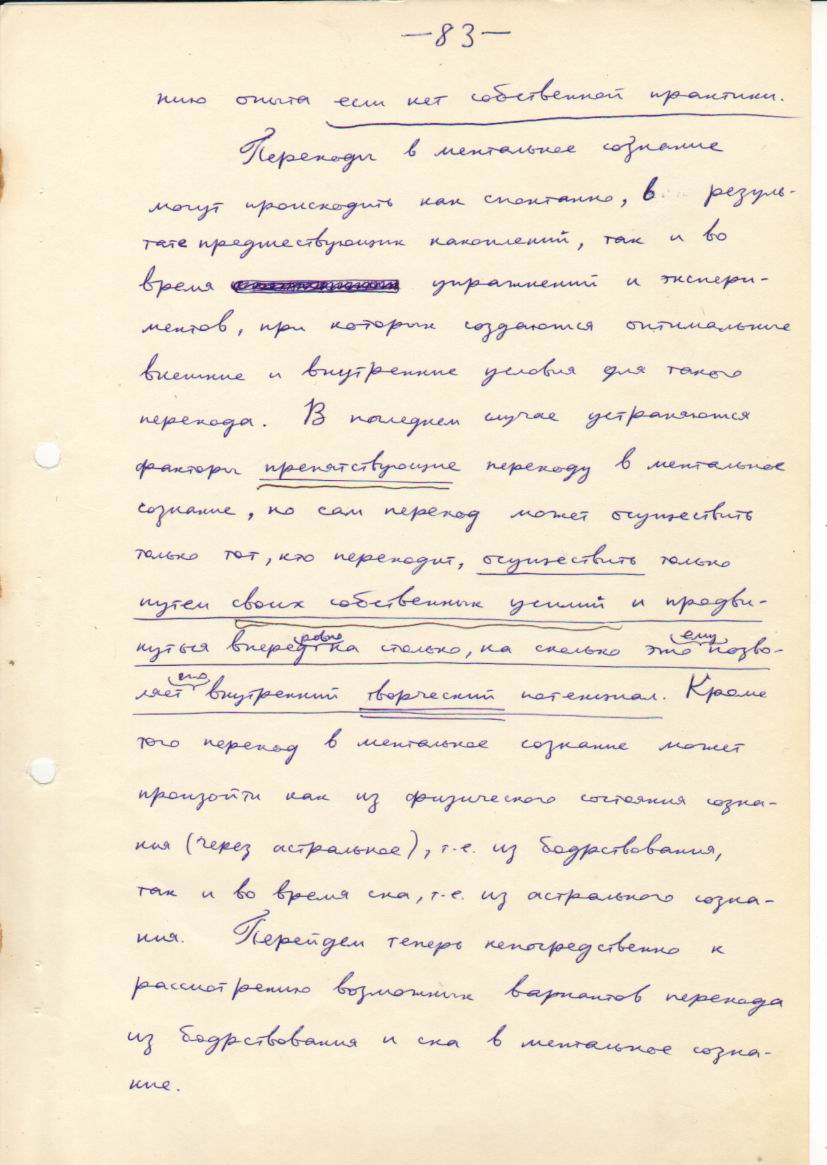 —83—
нию опыта если нет собственной практики.
Переходы в ментальное сознание
могут происходить как спонтанно, в резуль-
тате предшествующих накоплений, так и во
время упражнений и экспери-
ментов, при которых создаются оптимальные
внешние и внутренние условия для такого
перехода. В последнем случае устраняются
факторы препятствующие переходу в ментальное
сознание, но сам переход может осуществить
только тот, кто переходит, осуществить только
путем своих собственных усилий и продви-
нуться вперед ровно на столько, на сколько это ему позво-
ляет его внутренний творческий потенциал. Кроме
того переход в ментальное сознание может
произойти как из физического состояния созна-
ния (через астральное), т.е. из бодрствования,
так и во время сна, т.е. из астрального созна-
ния. Перейдем теперь непосредственно к
рассмотрению возможных вариантов перехода
из бодрствования и сна в ментальное созна-
ние.